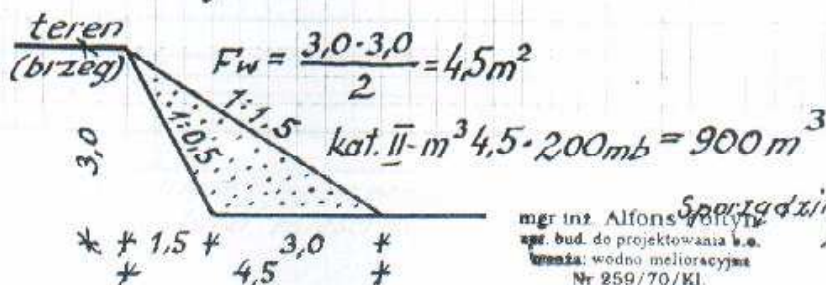 teren
(brzeg)
Fw = 3,0·3,0 / 2 = 4,5m²
1:1,5
1:0,5
3,0
kat. II - m³ 4,5 · 200mb = 900 m³
1,5 3,0
4,5
Sporządzi
mgr inż. Alfons
upr. bud. do projektowania b.o.
branża: wodno melioracyjna
Nr 259/70/Kl.